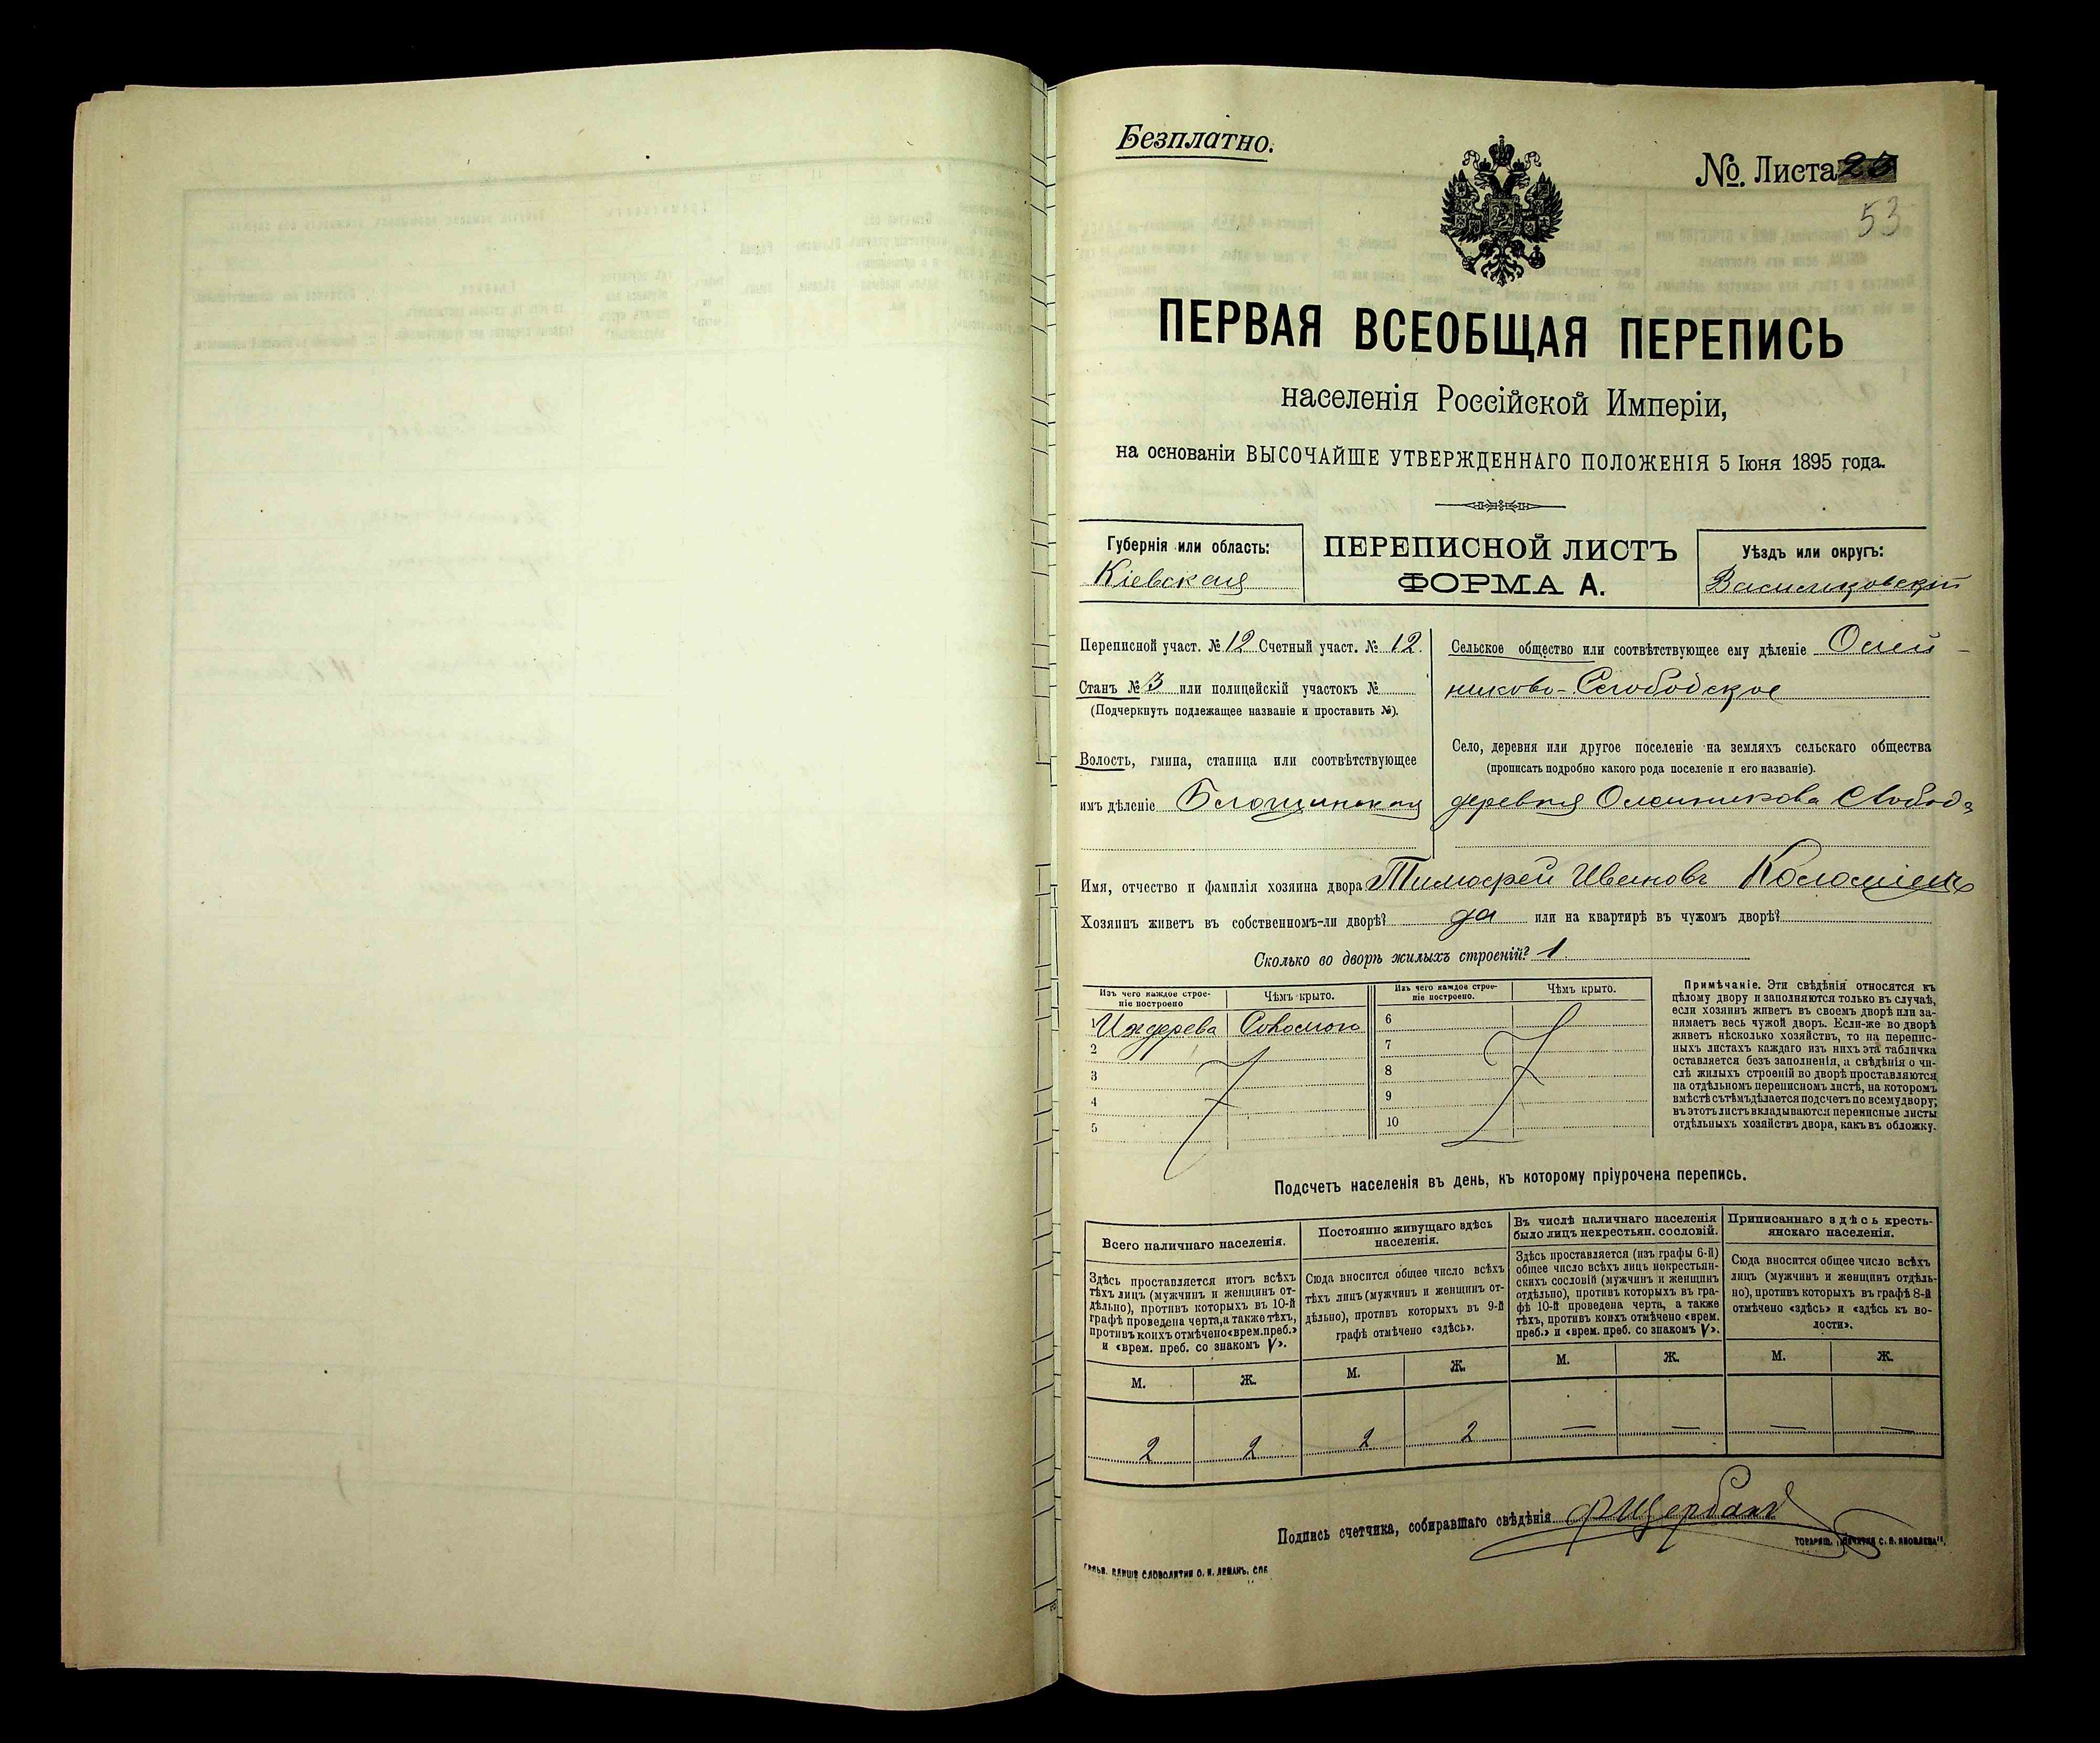 Безплатно.
№. Листа 23
53
ПЕРВАЯ ВСЕОБЩАЯ ПЕРЕПИСЬ
населенія Россійской Имперіи,
на основаніи ВЫСОЧАЙШЕ УТВЕРЖДЕННАГО ПОЛОЖЕНІЯ 5 Іюня 1895 года.
Губернія или область:
Кіевская
ПЕРЕПИСНОЙ ЛИСТЪ
ФОРМА А.
Уѣздъ или округъ:
Васильковскій
Переписной участ. № 12 Счетный участ. № 12.
Станъ № 3 или полицейскій участокъ №
(Подчеркнуть подлежащее названіе и проставить №).
Волость, гмина, станица или соотвѣтствующее
имъ дѣленіе Блощинская
Сельское общество или соотвѣтствующее ему дѣленіе Олей-
никово-Слободское
Село, деревня или другое поселеніе на земляхъ сельскаго общества
(прописать подробно какого рода поселеніе и его названіе).
деревня Олейникова Слобода
Имя, отчество и фамилія хозяина двора Тимофей Ивановъ Коломіецъ
Хозяинъ живетъ въ собственномъ-ли дворѣ? да или на квартирѣ въ чужомъ дворѣ?
Сколько во дворѣ жилыхъ строеній? 1
Изъ чего каждое строе-
ніе построено
Чѣмъ крыто.
Изъ чего каждое строе-
ніе построено.
Чѣмъ крыто.
1 Из дерева Соломою
2
3
4
5
6
7
8
9
10
Примѣчаніе. Эти свѣдѣнія относятся къ
цѣлому двору и заполняются только въ случаѣ,
если хозяинъ живетъ въ своемъ дворѣ или за-
нимаетъ весь чужой дворъ. Если-же во дворѣ
живетъ нѣсколько хозяйствъ, то на перепис-
ныхъ листахъ каждаго изъ нихъ эта табличка
оставляется безъ заполненія, а свѣдѣнія о чи-
слѣ жилыхъ строеній во дворѣ проставляются
на отдѣльномъ переписномъ листѣ, на которомъ
вмѣстѣ съ тѣмъ дѣлается подсчетъ по всему двору;
въ этотъ листъ вкладываются переписные листы
отдѣльныхъ хозяйствъ двора, какъ въ обложку.
Подсчетъ населенія въ день, къ которому пріурочена перепись.
Всего наличнаго населенія.
Здѣсь проставляется итогъ всѣхъ
тѣхъ лицъ (мужчинъ и женщинъ от-
дѣльно), противъ которыхъ въ 10-й
графѣ проведена черта, а также тѣхъ,
противъ коихъ отмѣчено «врем. преб.»
и «врем. преб. со знакомъ V».
Постоянно живущаго здѣсь
населенія.
Сюда вносится общее число всѣхъ
тѣхъ лицъ (мужчинъ и женщинъ от-
дѣльно), противъ которыхъ въ 9-й
графѣ отмѣчено «здѣсь».
Въ числѣ наличнаго населенія
было лицъ некрестьян. сословій.
Здѣсь проставляется (изъ графы 6-й)
общее число всѣхъ лицъ некрестьян-
скихъ сословій (мужчинъ и женщинъ
отдѣльно), противъ которыхъ въ гра-
фѣ 10-й проведена черта, а также
тѣхъ, противъ коихъ отмѣчено «врем.
преб.» и «врем. преб. со знакомъ V».
Приписаннаго здѣсь кресть-
янскаго населенія.
Сюда вносится общее число всѣхъ
лицъ (мужчинъ и женщинъ отдѣль-
но), противъ которыхъ въ графѣ 8-й
отмѣчено «здѣсь» и «здѣсь къ во-
лости».
М. Ж. М. Ж. М. Ж. М. Ж.
2 2 2 2 — — — —
Подпись счетчика, собиравшаго свѣдѣнія Ф Щербакъ
ТОВАРИЩ. „ПЕЧАТНЯ С. П. ЯКОВЛЕВА".
КЛИШЕ СЛОВОЛИТНИ О. И. ЛЕМАНЪ. СПБ